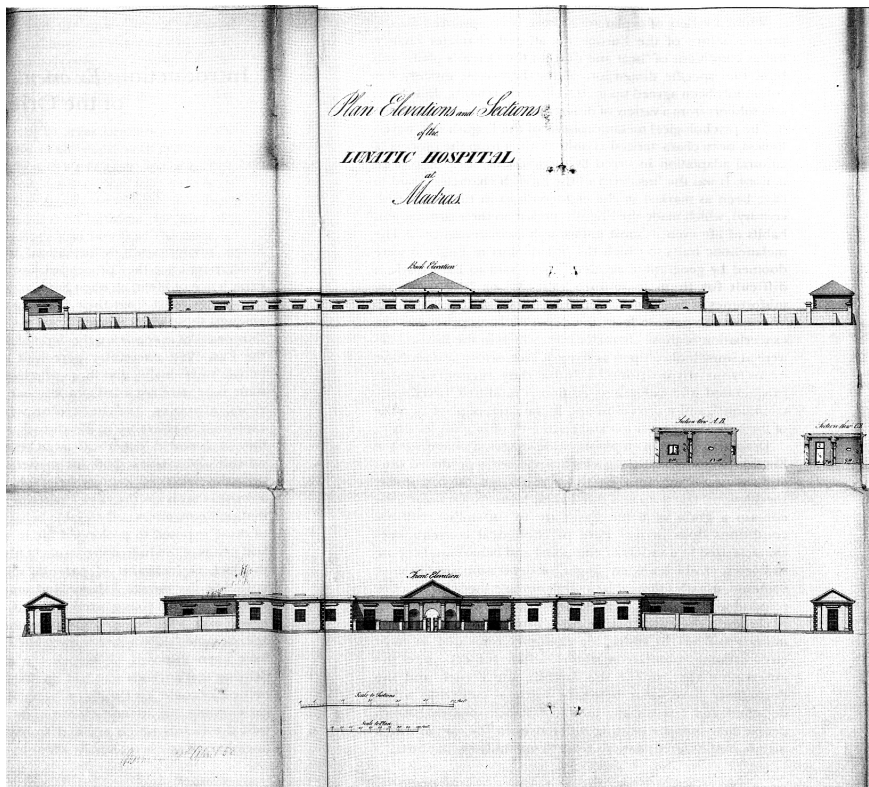 Plan Elevations and Sections
of the
LUNATIC HOSPITAL
at
Madras
Back Elevation
Section thro' A.B.
Section thro'
Front Elevation
Scale to Sections
Scale to Plan